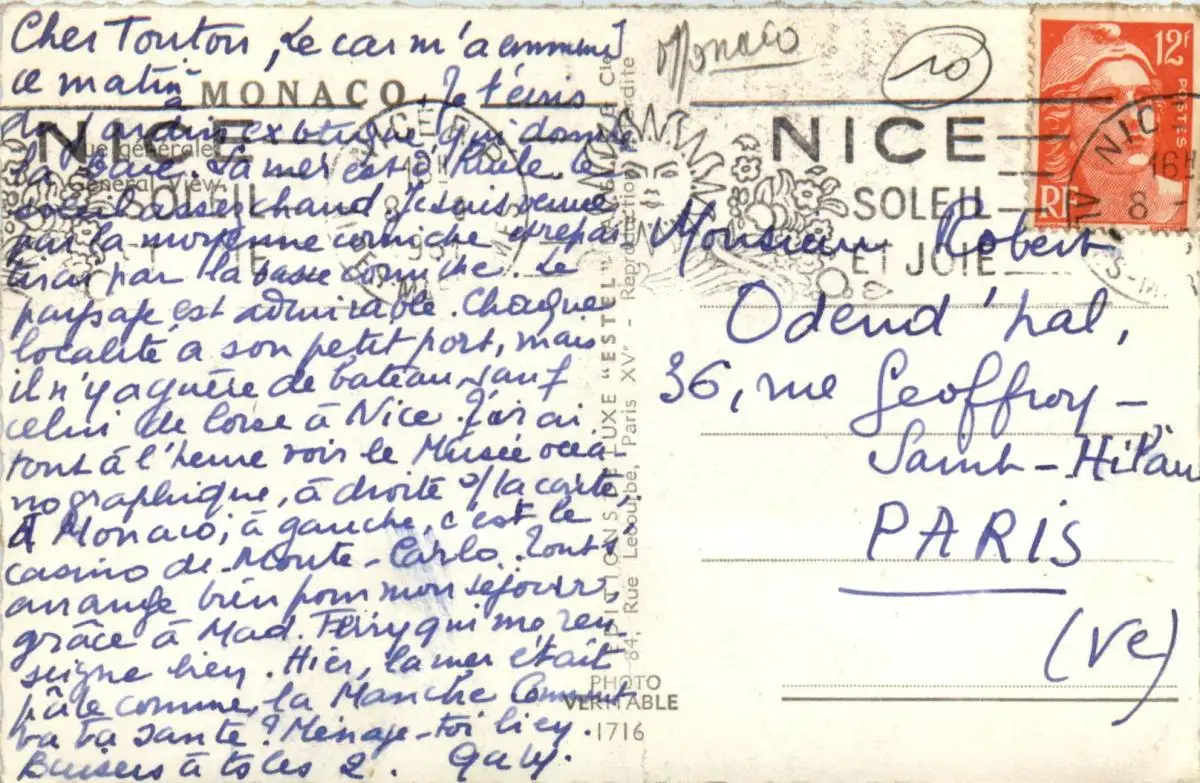 Cher Tonton, Le car m'a emmené
ce matin à MONACO. Je t'écris
du jardin exotique qui domine
la baie. La mer est d'huile, le
soleil assez chaud. Je suis venue
par la moyenne corniche et repar
tirai par la basse corniche. Le
paysage est admirable. Chaque
localité a son petit port, mais
il n'y a guère de bateau, sauf
celui de Corse à Nice. J'irai
tout à l'heure voir le Musée océa
nographique, à droite s/ la carte
à Monaco, à gauche, c'est le
casino de Monte-Carlo. Tout s'
arrange bien pour mon séjour,
grâce à Mad. Ferry qui me ren
seigne bien. Hier, la mer était
pâle comme la Manche Comment
va ta santé? Ménage-toi bien.
Baisers à tous les 2. Gaby.
Vue générale
General View
NICE
SOLEIL
ET JOIE
EDITIONS DE LUXE "ESTEL"
84, Rue Lecourbe, Paris XV° - Reproduction interdite
PHOTO
VERITABLE
1716
Monaco
10
12F
POSTES
RF
NICE
SOLEIL
ET JOIE
NIC
16H
8 -
Monsieur Robert
Odend'hal,
36, rue Geoffroy-
Saint-Hilaire
PARIS
(Ve)